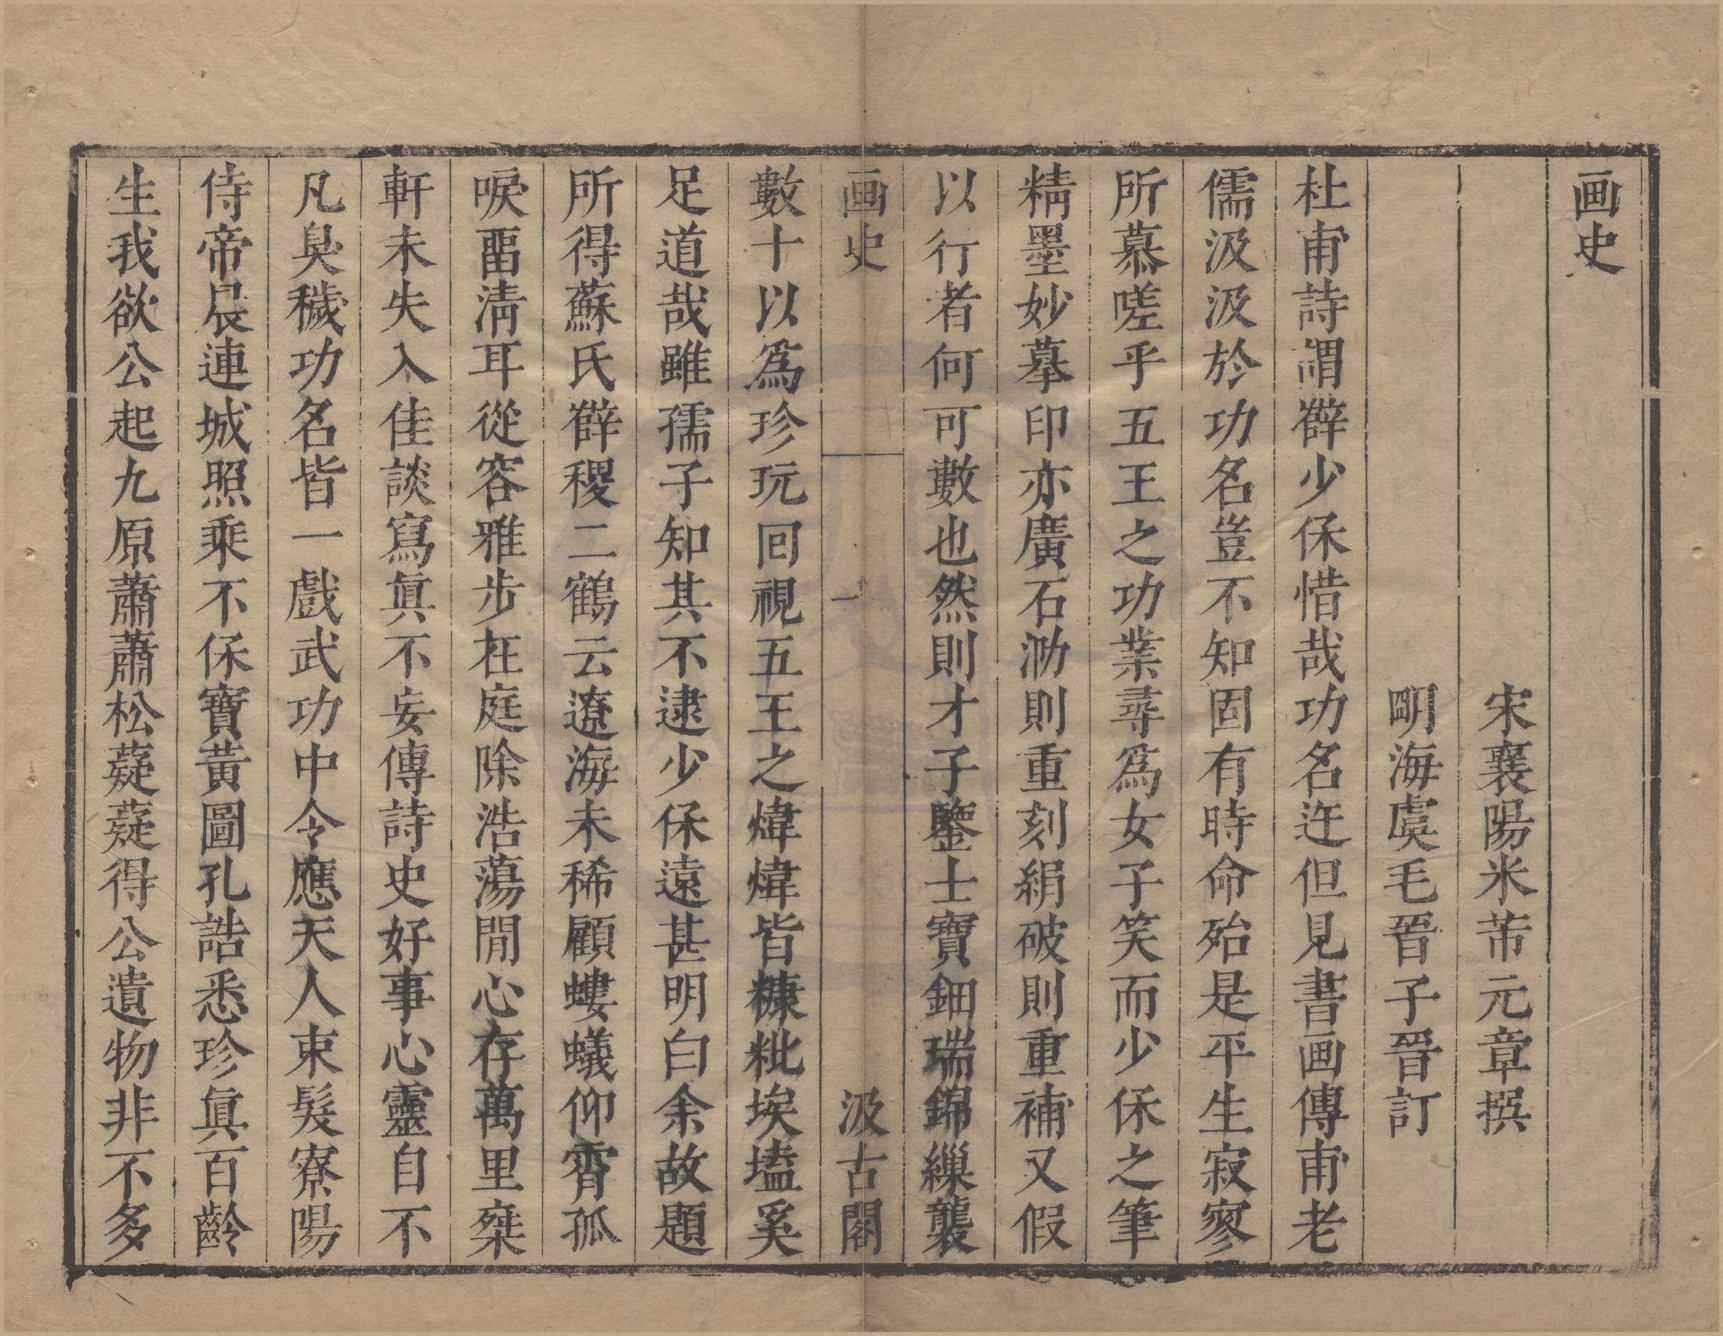 画史
宋襄陽米芾元章撰
明海虞毛晉子晉訂
杜甫詩謂薛少保惜哉功名迕但見書画傳甫老
儒汲汲於功名豈不知固有時命殆是平生寂寥
所慕嗟乎五王之功業尋為女子笑而少保之筆
精墨妙摹印亦廣石泐則重刻絹破則重補又假
以行者何可數也然則才子鑒士寶鈿瑞錦繅襲
画史
一
汲古閣
數十以為珍玩回視五王之煒煒皆糠粃埃壒奚
足道哉雖孺子知其不逮少保遠甚明白余故題
所得蘇氏薛稷二鶴云遼海未稀顧螻蟻仰霄孤
唳畱清耳從容雅步在庭除浩蕩閒心存萬里乘
軒未失入佳談寫眞不妄傳詩史好事心靈自不
凡臭穢功名皆一戲武功中令應天人束髮寮陽
侍帝晨連城照乘不保寶黄圖孔誥悉珍眞百齡
生我欲公起九原蕭蕭松薿薿得公遺物非不多